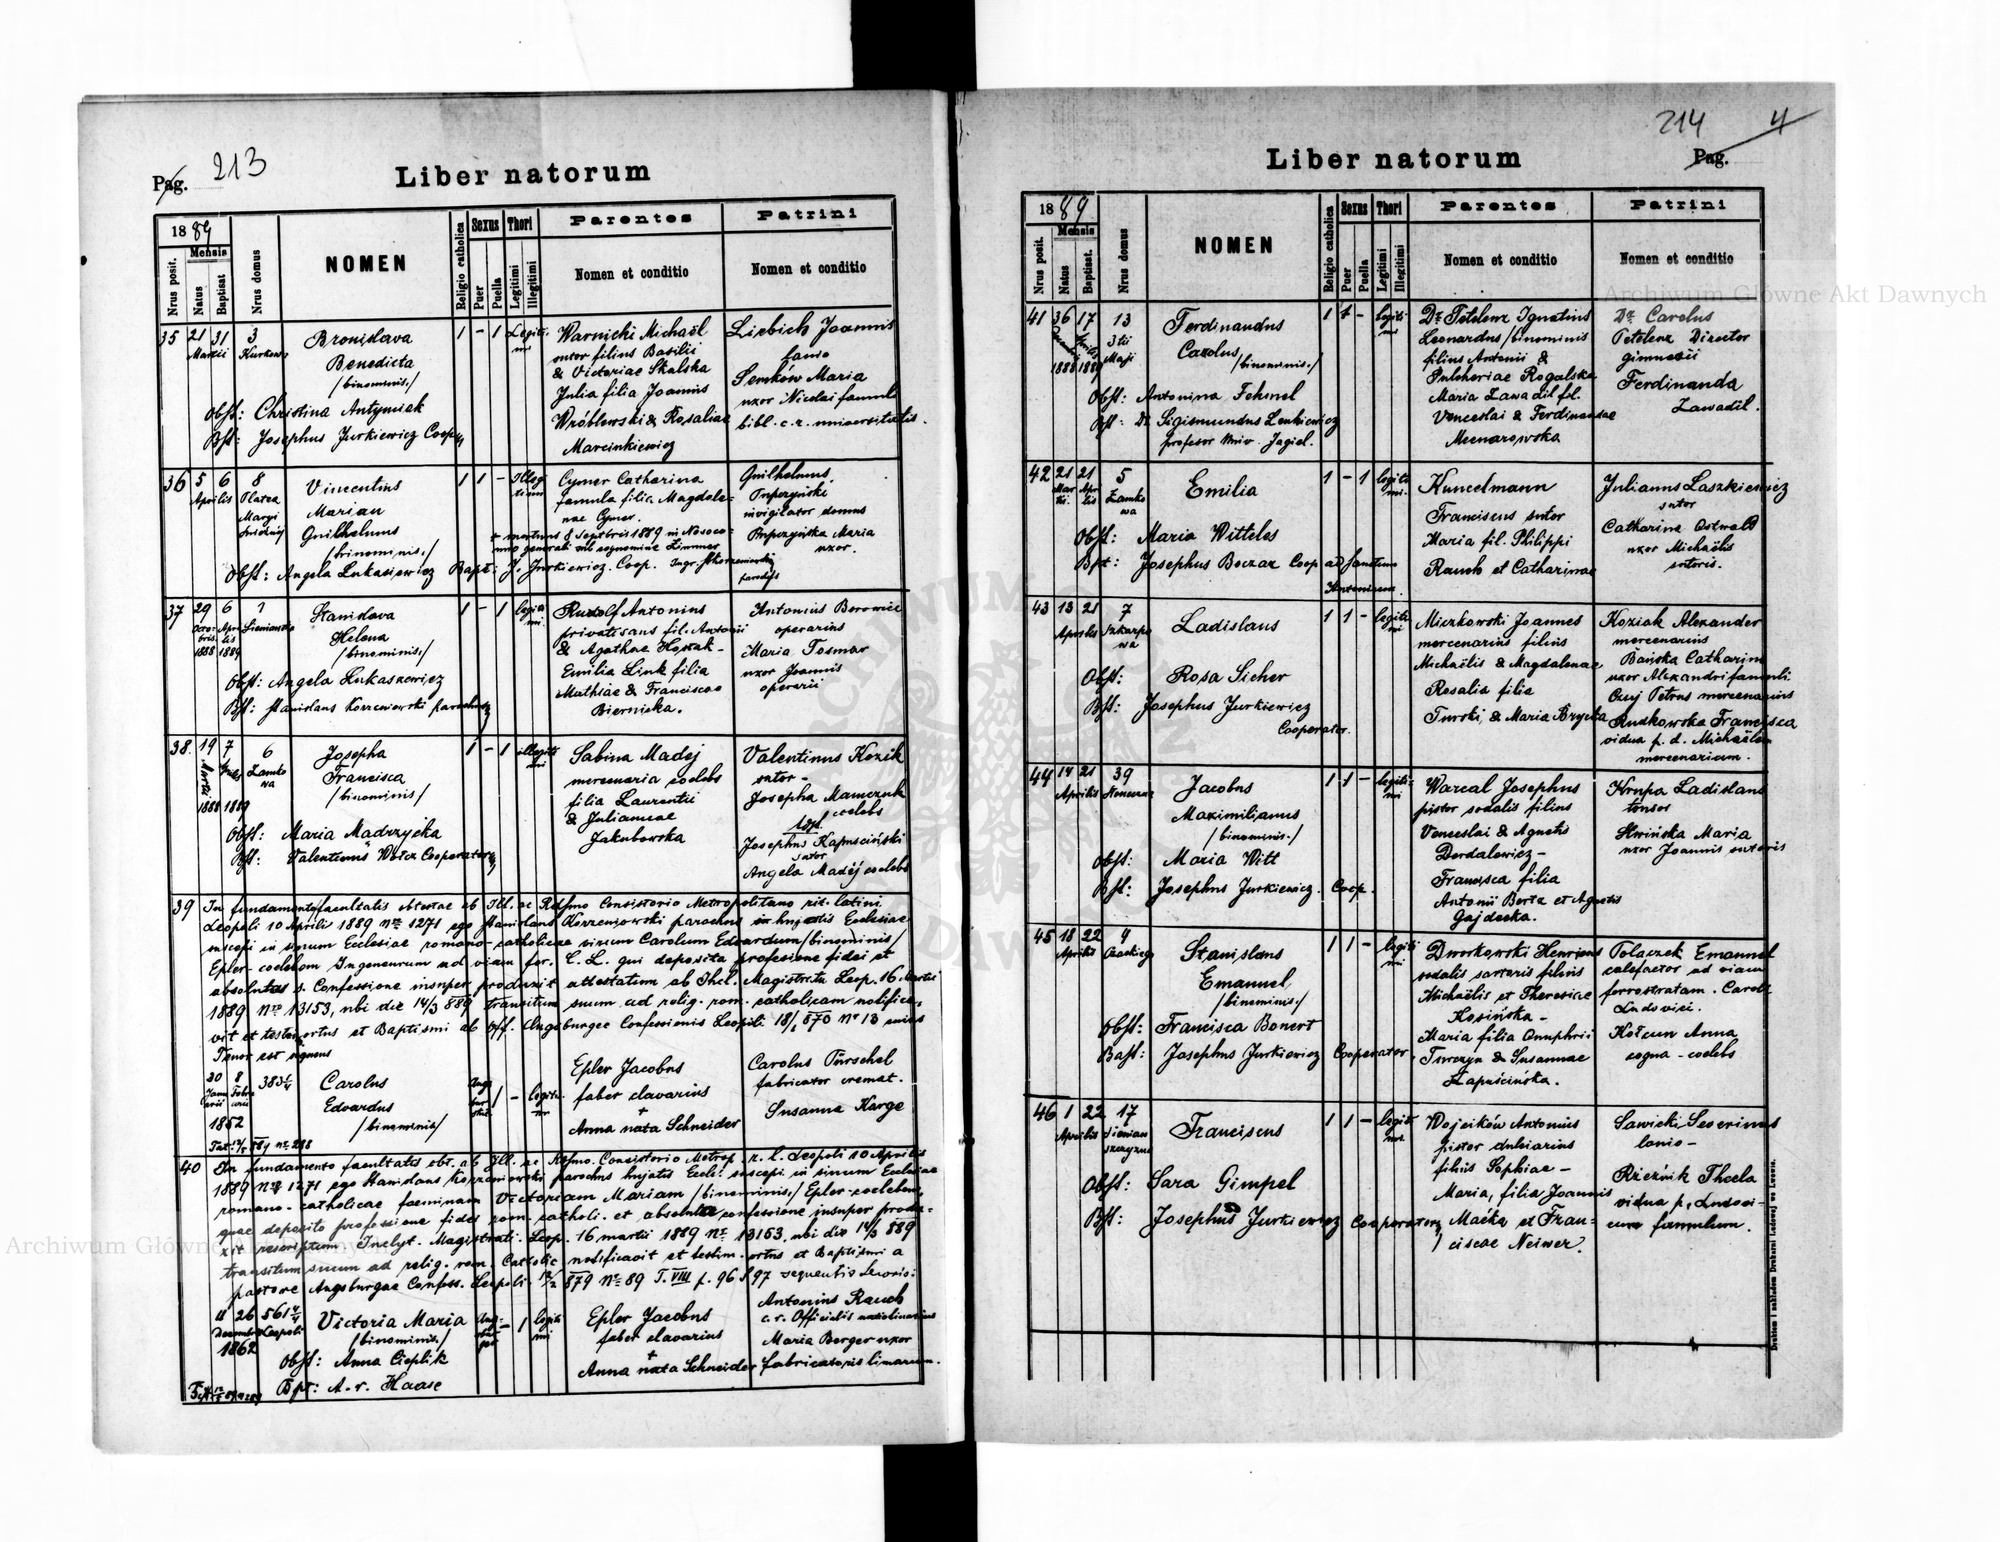 Pag. 213
Liber natorum
1889
Mensis
Nrus posit.
Natus
Baptisat
Nrus domus
NOMEN
Religio catholica
Sexus
Puer
Puella
Thori
Legitimi
Illegitimi
Parentes
Nomen et conditio
Patrini
Nomen et conditio
35 21 31 3 Bronislava 1 - 1 Legiti Warnicki Michaël Liebich Joannis
Martii Kurkowa Benedicta mi sutor filius Basilii lanio
/binominis./ & Victoriae Skalska Semków Maria
Julia filia Joannis uxor Nicolai famuli
Obst: Christina Antyniak Wróblewski & Rosaliae bibl. c. r. universitatis.
Bst: Josephus Jurkiewicz Coop. Marcinkiewicz
36 5 6 8 Vincentius 1 1 - Illegi Cymer Catharina Guilhelmus
Aprilis Platea Marian timi famula filia Magdale-
Maryi Guilhelmus nae Cymer. invigilator domus
Śnieżnéj /trinominis./ + mortuus 8 Septbris 1889 in Nosoco- Maria
mio generali sub cognomine Zimmer uxor.
Obst: Angela Lukasiewicz Bapt: J. Jurkiewicz. Coop.
37 29 6 7 Stanislava 1 - 1 legiti Rudolf Antonius Antonius Borowiec
Octo- Apri Helena mi. privatisans fil. Antonii operarius
bris lis /binominis./ & Agathae Maria Tosmar
1888 1889 Emilia Link filia uxor Joannis
Obst: Angela Lukasiewicz Mathiae & Franciscae operarii
Bst: Stanislaus Korzeniowski parochus Biernicka.
38. 19 7 6 Josepha 1 - 1 illegiti Sabina Madej Valentinus Kozik
Zamko Francisca mi mercenaria coelebs sutor -
wa /binominis/ filia Laurentii Josepha Mamczuk
1888 1889 & Juliannae coelebs
Obst: Maria Mądrzycka Jakubowska Josephus Kapuściński
Bst: Valentinus Wołcz Cooperator sutor
Angela Madéj coelebs
39 In fundamento facultatis obtentae ab Ill. ac Rdsmo Consistorio Metropolitano rit. latini
Leopoli 10 Aprilis 1889 nro 1271 ego Stanislaus Korzeniowski parochus in hujatis Ecclesiae
suscepi in sinum Ecclesiae romano-catholicae virum Carolum Edvardum /binominis/
Epler-coelebem Ingeneurum ad viam fer. C. L. qui deposita profesione fidei et
absoluta s. Confessione insuper produxit attestatum ab Incl. Magistratu Leop. 16 Martii
1889 nro 13153, ubi die 14/3 889 transitum suum ad relig. rom. catholicam notifica-
vit et testim. ortus et Baptismi ab off. Augsburgae Confessionis Leopoli 18/1 870 nr 13 cuius
Tenor est sequens
30 8 383 1/4 Carolus 1 - legiti Epler Jacobus Carolus Pürschel
Janu Febru Edvardus faber clavarius fabricator cremat.
arii arii /binominis/ + Susanna Karge
1852 Anna nata Schneider
40 In fundamento facultatis obt. ab Ill. ac Rdsmo. Consistorio Metrop. r. l. Leopoli 10 Aprilis
1889 nro 1271 ego Stanislaus Korzeniowski parochus hujatis Eccl. suscepi in sinum Ecclesiae
romano-catholicae faeminam Victoriam Mariam /binominis./ Epler-coelebem,
quae deposito professione fidei rom. catholi. et absoluta confessione insuper produ-
xit rescriptum Inclyt. Magistrati Leop. 16 martii 1889 nr 13153, ubi die 14/3 889
transitum suum ad relig. rom. Catholic. notificavit et testim. ortus et Baptismi a
pastore Augsburgae Confess. Leopoli 879 nr 89 T. VIII p. 96 & 97 sequentis tenoris:
11 26 561 Victoria Maria - 1 legiti Epler Jacobus Antonius Rauch
Decembris Leopoli /binominis/ mi faber clavarius c. r. Officialis
1862 Obst: Anna Cieplik + Maria Berger uxor
Bpt: A. v. Haase Anna nata Schneider fabricatoris limarum.
214 4
Pag.
Liber natorum
1889
Mensis
Nrus posit.
Natus
Baptisat.
Nrus domus
NOMEN
Religio catholica
Sexus
Puer
Puella
Thori
Legitimi
Illegitimi
Parentes
Nomen et conditio
Patrini
Nomen et conditio
41 17 13 Ferdinandus 1 1 - legiti Dr. Petelenz Ignatius Dr. Carolus
3tii Carolus mi Leonardus /binominis Petelenz Director
Maji /binominis./ filius Antonii & gimnasii
1888 1889 Pulcheriae Rogalska Ferdinanda
Obst: Antonina Fehmel Maria Zawadil fil. Zawadil.
Bst: Dr. Sigismundus Lenkiewicz Venceslai & Ferdinandae
profesor Univ. Jagiel. Mcenarowska
42 21 21 5 Emilia 1 - 1 legiti Kuncelmann Julianus Laszkiewicz
Mar Apr Zamko mi. Franciscus sutor sutor
tii. ilis wa Maria fil. Philippi Catharina Ostwald
Obst: Maria Witteles Rauch et Catharinae uxor Michaëlis
Bpt: Josephus Boczar Coop ad Sanctum sutoris.
Antonium
43 13 21 7 Ladislaus 1 1 - legiti Miczkowski Joannes Koziak Alexander
Aprilis Szkarpo mi mercenarius filius mercenarius
wa Michaëlis & Magdalenae Bańska Catharina
Obst: Rosa Sicher Rosalia filia uxor Alexandri famuli
Bst: Josephus Jurkiewicz Turski, & Maria Brycka Petrus mercenarius
Cooperator. Rudkowska Francisca
vidua p. d. Michaëlem
mercenarium.
44 14 21 39 Jacobus 1 1 - legiti- Warcal Josephus Krupa Ladislaus
Aprilis Słoneczna Maximilianus mi pistor sodalis filius tonsor
/binominis./ Venceslai & Agnetis Maria
Obst: Maria Witt Derdalewicz - uxor Joannis sutoris
Bst: Josephus Jurkiewicz. Coop. Francisca filia
Antonii Berta et Agnetis
Gajdecka.
45 18 22 4 Stanislaus 1 1 - legiti Dworkowski Henricus Polaczek Emanuel
Aprilis Czackiego Emanuel mi sodalis sartoris filius calefactor ad viam
/binominis./ Michaëlis et Theresiae ferrostratam. Caroli
Obst: Francisca Bonert Kosińska - Ludovici.
Bast: Josephus Jurkiewicz Cooperator Maria filia Onuphrii Kołcun Anna
Turczyn & Susannae coqua - coelebs
Łapuścińska.
46 1 22 17 Franciscus 1 1 - legiti Wojcików Antonius Sawicki Severinus
Aprilis Sieniaw mi. pistor dulciarius lanio -
szczyzna filius Sophiae - Rzeźnik Thecla
Obst: Sara Gimpel Maria, filia Joannis vidua p. Ludovi-
Bst: Josephus Jurkiewicz Cooperator Maćka et Fran- cum famulum.
ciscae Neiwer.
Drukiem i nakładem Drukarni Ludowej we Lwowie.
Archiwum Główne Akt Dawnych
Archiwum Główne Akt Dawnych